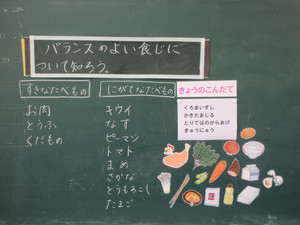 バランスのよい食じに
ついて知ろう。
すきなたべもの
お肉
とうふ
くだもの
にがてなたべもの
キウイ
なす
ピーマン
トマト
まめ
さかな
とうもろこし
たまご
きょうのこんだて
くろまいずし
かきたまじる
とりてばのからあげ
ぎゅうにゅう